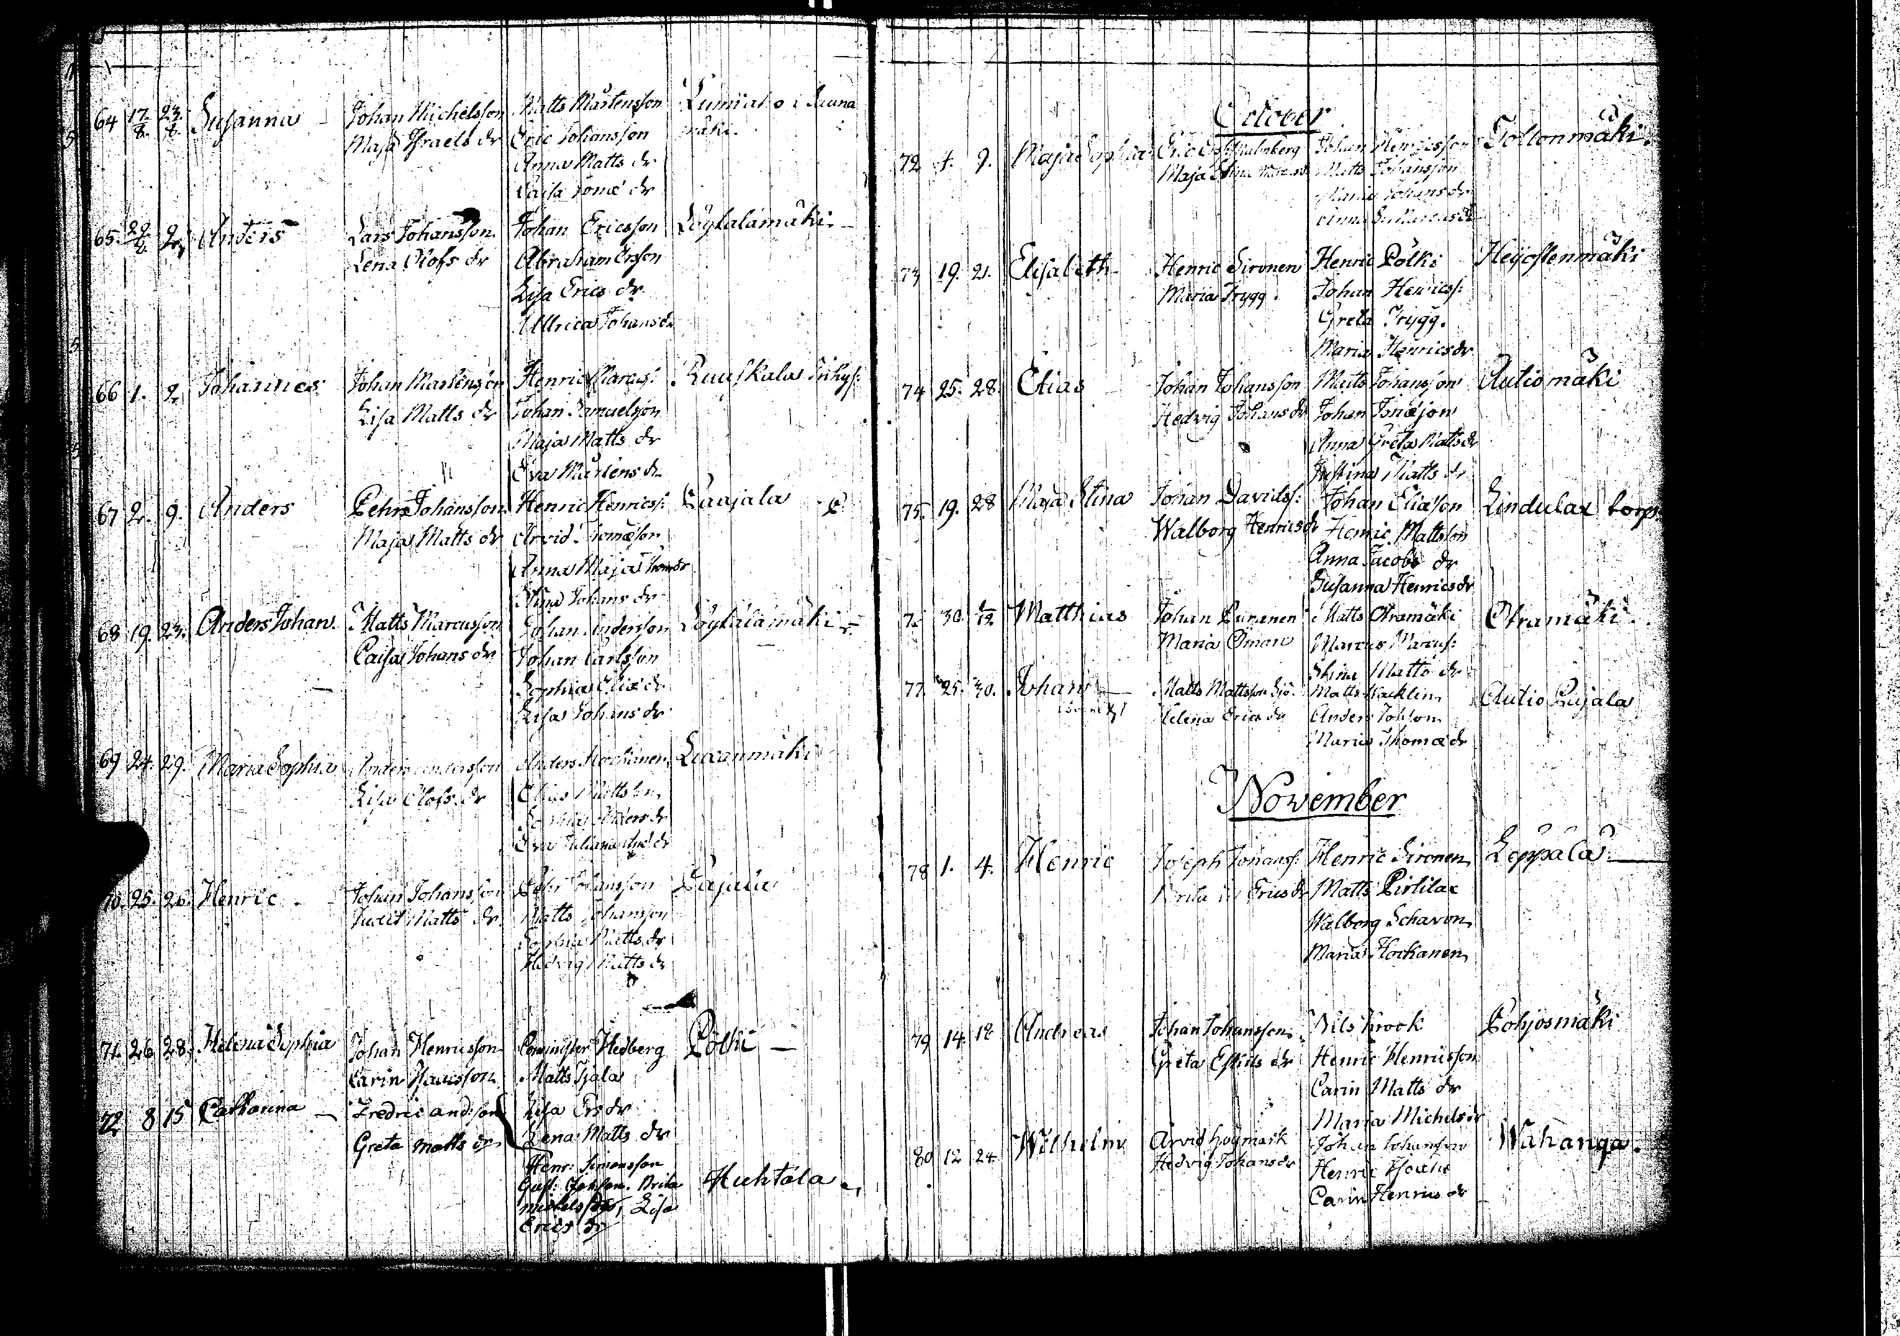 64 17/8. 23/8. Susanna - Johan Michelsson Matts Mårtensson
Maja Israels dr Eric Johansson
Anna Matts dr
Caisa Tomæ dr
65. 29/8 2/9 Anders Lars Johansson Johan Ericsson Löylälämäki.
Lena Olofs dr Abraham Ersson
Lisa Erics dr
Ullrica Johans dr
66 1. 2. Johannes Johan Mårtensson Henric Marcuss: Ruuskala
Lisa Matts dr Johan Samuelsson
Maja Matts dr
Eva Mårtens dr
67 2. 9. Anders Pehr Johansson Henric Henricss: Paajala
Maja Matts dr Arvid Thomæson
Anna Maja Thom dr
Stina Johans dr
68 19. 23. Anders Johan Matts Marcusson Johan Andersson Löylälämäki
Caisa Johans dr Johan Carlsson
Sophia Eliæ dr
Lisa Johans dr
69 24. 29. Maria Sophia Anders Andersson Anders Hockanen
Lisa Olofs dr Elias Mattsson
Sophia Anders dr
Eva Juliana
70. 25. 26. Henric Johan Johansson Pehr Johansson
Judit Matts dr Matts Johansson
Sophia Matts dr
Hedvig Matts dr
71. 26 28. Helena Sophia Johan Henricsson Comminister Hedberg Pölki
Carin Isaacsson Matts
72 8 15 Catharina Fredric andsson Lisa Ers dr
Greta Matts dr Lena Matts dr
Henr: Simonsson
Gust: Johsson. Brita Huhtala
Michels dr, Lisa
Erics dr
October
72 4. 9. Maja Sophia Eric Johan Henricsson Toltonmäki.
Maja Stina Matts Johansson
Maria Johans dr
Anna
73 19. 21. Elisabeth Henric Sironen Henric Pölki Heijostenmäki
Maria Trygg. Johan Henricss:
Greta Trygg.
Maria Henrics dr
74 25. 28. Elias Johan Johansson Matts Johansson Autiomäki
Hedvig Johans dr Johan
Anna Greta Matts dr
Justina Matts dr
75. 19. 28 Maja Stina Johan Davidss: Johan Eliæson Lindulax torp
Walborg Henrics dr Henric Mattsson
Anna Jacobs dr
Susanna Henrics dr
76 30. 1/12 Matthias Johan Lunanen Matts Otramäki Otramäki
Maria Marcus Marcuss:
Stina Matts dr
77. 25. 30. Johan Matts Mattsson Matts Wacklin Autio Pujala
Helena Erics dr Anders Johsson
Maria Thomæ dr
November
78 1. 4. Henric Joseph Johanss: Henric Sironen Leppälä
Erics dr Matts Pirtilax
Walborg Schavon
Maria Hockanen
79 14. 18 Andreas Johan Johansson Nils Krook Pohjosmäki
Greta Eskils dr Henric Henricsson
Carin Matts dr
Maria Michels dr
80 12 24 Wilhelm Arvid Högmark Johan Johansson Wahanga.
Hedvig Johans dr Henric
Carin Henrics dr